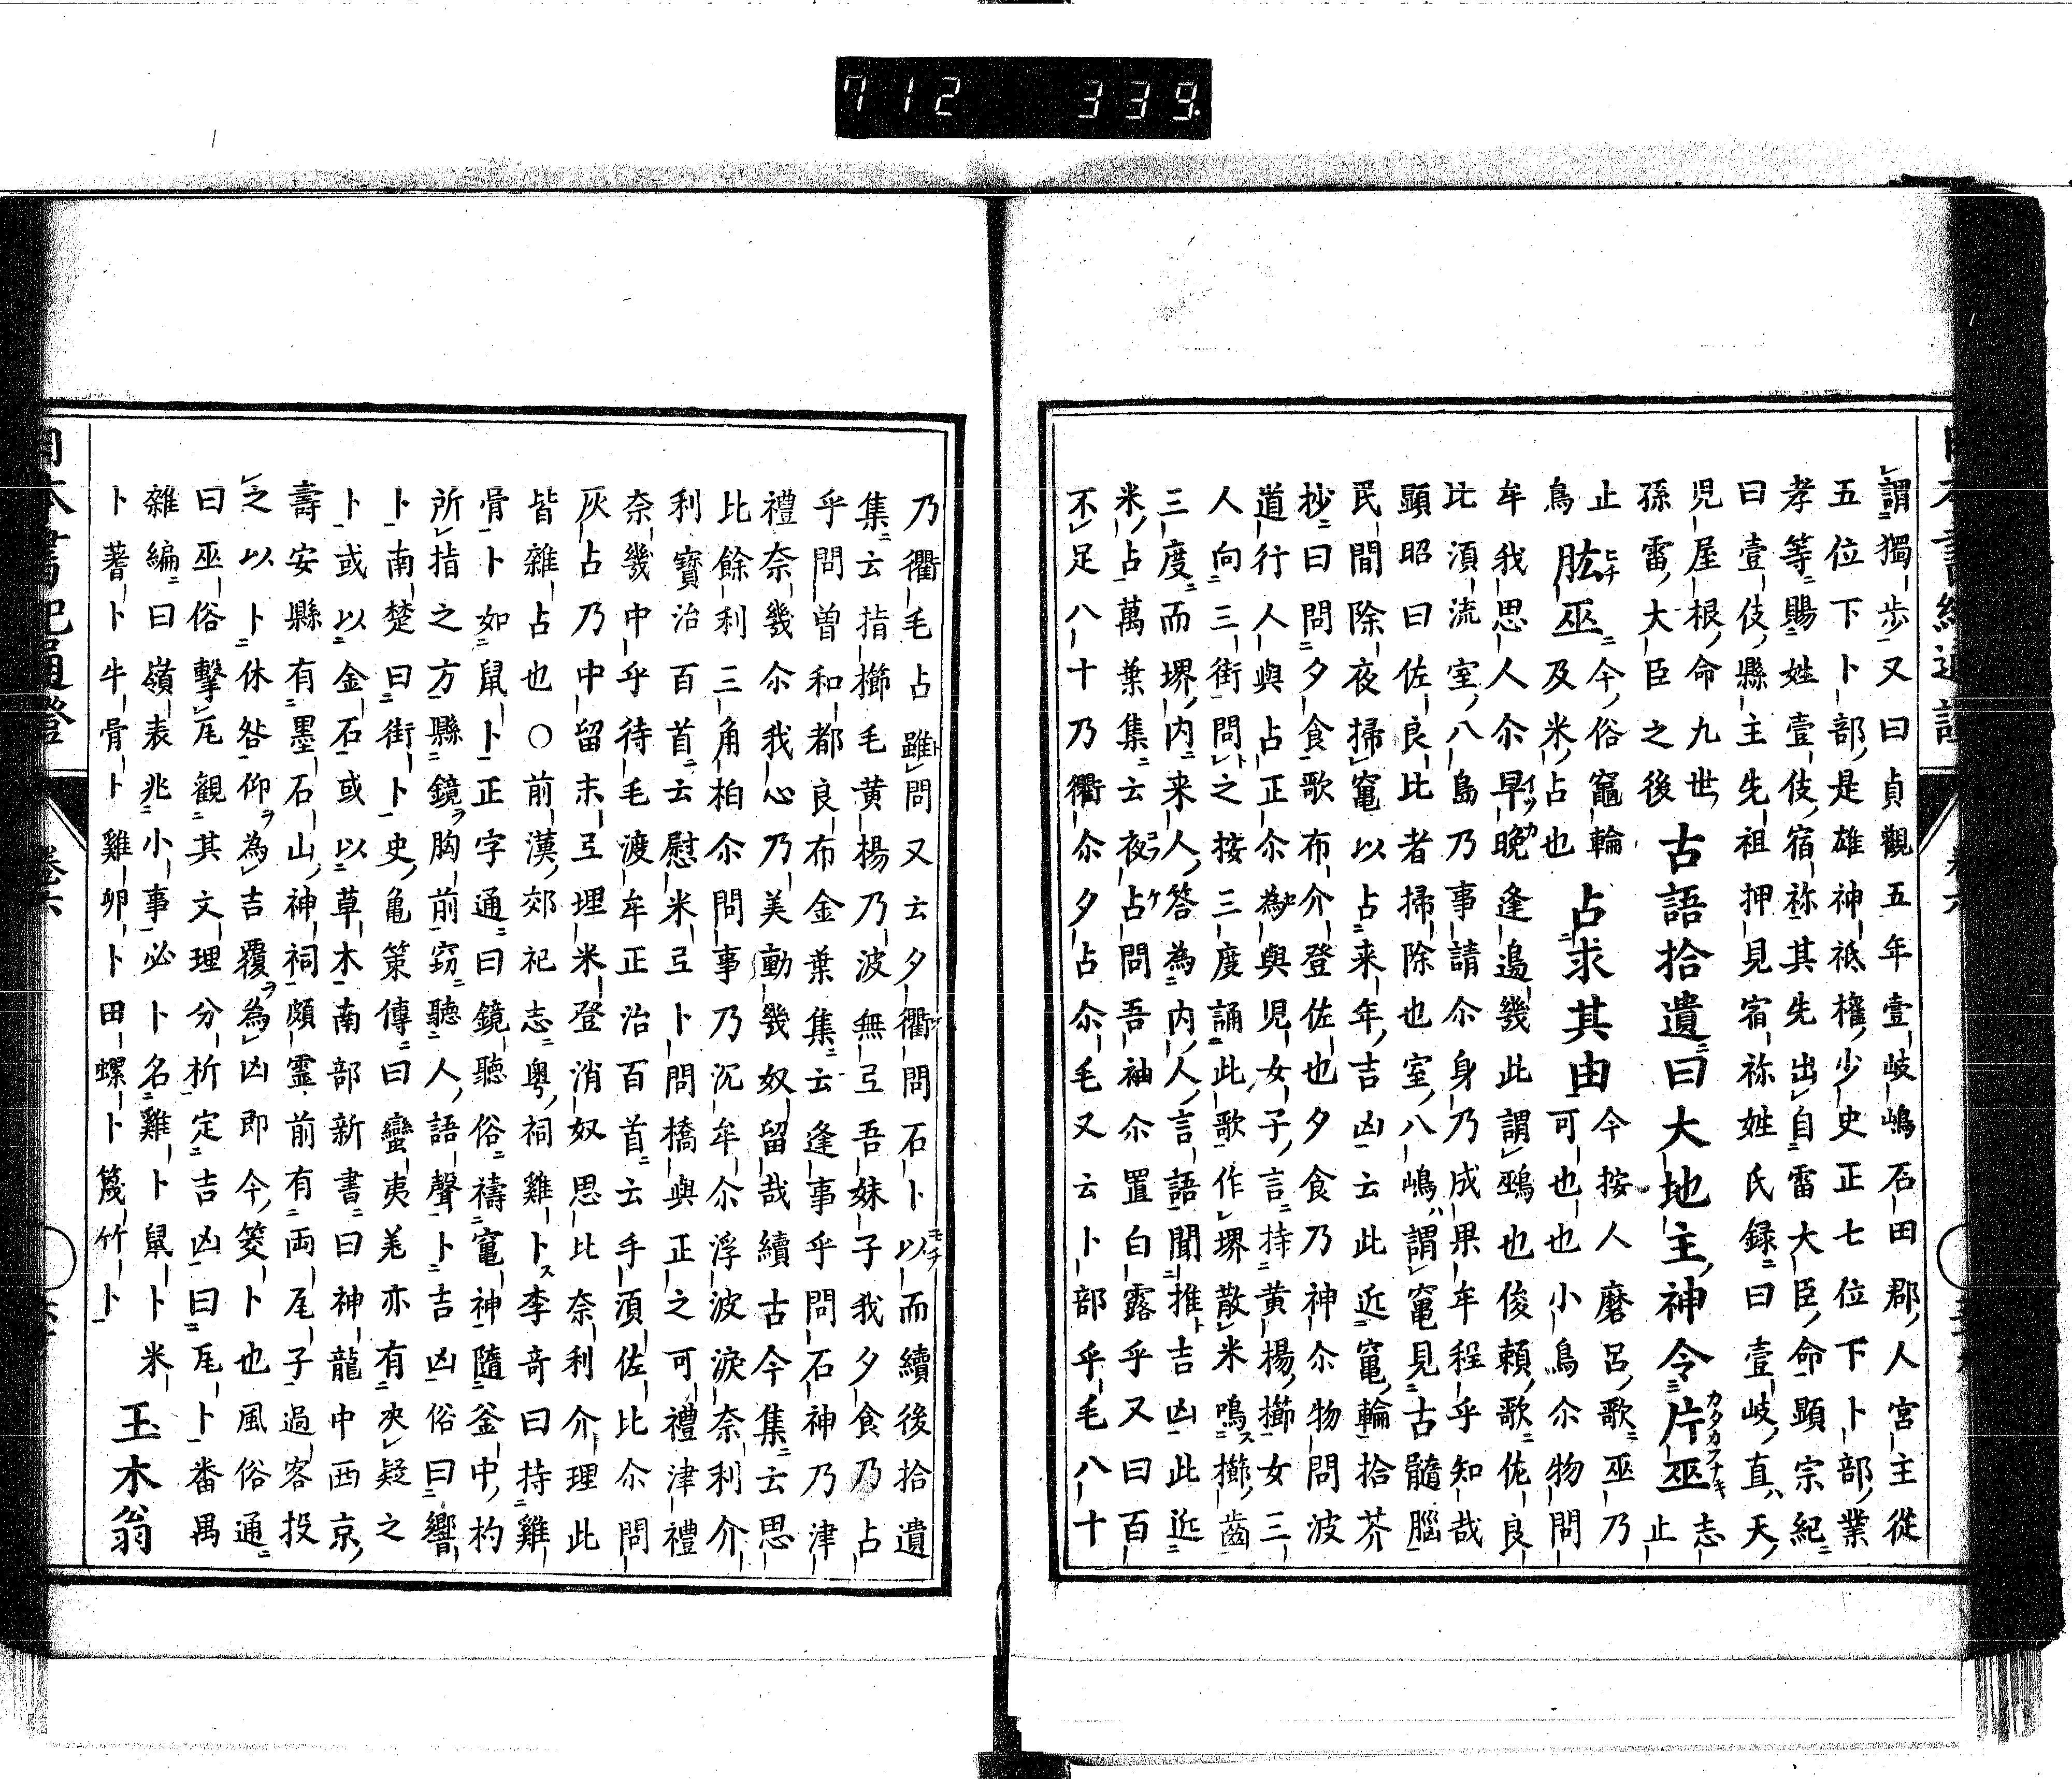 712 339
謂獨步又曰貞觀五年壹岐嶋石田郡人宮主從
五位下卜部是雄神祇權少史正七位下卜部業
孝等賜姓壹伎宿祢其先出自雷大臣命顯宗紀
曰壹伎縣主先祖押見宿祢姓氏録曰壹岐直天
児屋根命九世
孫雷大臣之後
古語拾遺曰大地主神令片巫
カタカフナキ
志
止
止
鳥
肱巫
ヒチ
今俗竈輪
及米占也
占求其由
今按人磨呂歌巫乃
可也也小鳥尒物問
牟我思人尒早晚逢邉幾此謂鵐也俊頼歌佐良
比湏流室八島乃事請尒身乃成果牟程乎知哉
顯昭曰佐良比者掃除也室八嶋謂竃見古髓腦
民間除夜掃竃以占来年吉凶云此近竃輪拾芥
抄曰問夕食歌布介登佐也夕食乃神尒物問波
道行人與占正尒為與児女子言持黄楊擳女三
人向三街問之按三度誦此歌作堺散米鳴擳齒
三度而堺内来人答為内人言語聞推吉凶此近
米占萬葉集云夜占問吾袖尒置白露乎又曰百
不足八十乃衢尒夕占尒毛又云卜部乎毛八十
乃衢毛占雖問又云夕衢問石卜以而續後拾遺
集云指擳毛黄楊乃波無弖吾妹子我夕食乃占
乎問曽和都良布金葉集云逢事乎問石神乃津
禮奈幾尒我心乃美動幾奴留哉續古今集云思
比餘利三角柏尒問事乃沉牟尒浮波淚奈利介
利寶治百首云慰米弖卜問橋與正之可禮津禮
奈幾中乎待毛渡牟正治百首云手湏佐比尒問
灰占乃中留末弖埋米登消奴思比奈利介理此
皆雜占也〇前漢郊祀志粤祠雞卜李奇曰持雞
骨卜如鼠卜正字通曰鏡聽俗禱竃神隨釜中杓
所指之方縣鏡胸前窈聽人語聲卜吉凶俗曰響
卜南楚曰街卜史亀策傳曰蠻夷羗亦有決疑之
卜或以金石或以草木南部新書曰神龍中西京
壽安縣有墨石山神祠頗霊前有両瓦子過客投
之以卜休咎仰為吉覆為凶即今筊卜也風俗通
曰巫俗擊瓦觀其文理分析定吉凶曰瓦卜番禺
雜編曰嶺表兆小事必卜名雞卜鼠卜米
卜蓍卜牛骨卜雞卵卜田螺卜篾竹卜
玉木翁